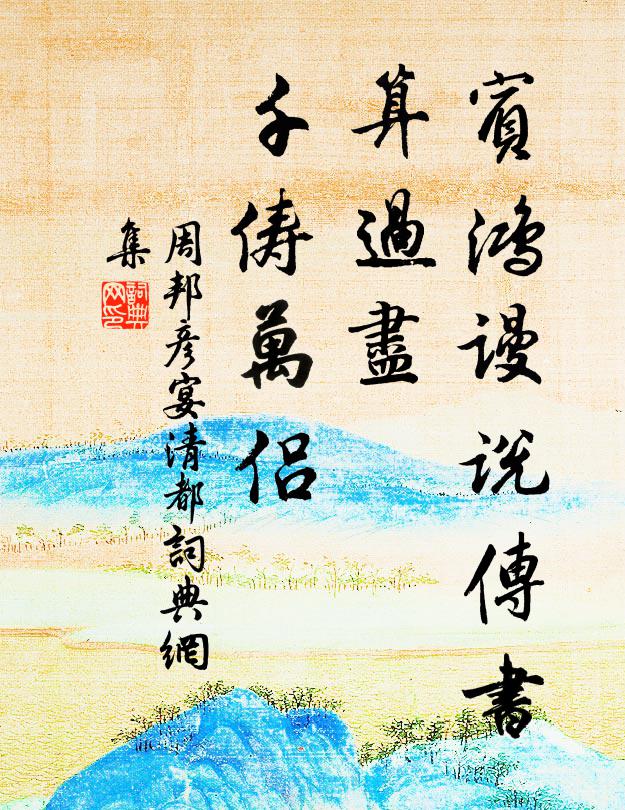 賓鴻謾説傳書
算過盡
千儔萬侶
周邦彥宴清都詞典網
集
詞典
网印